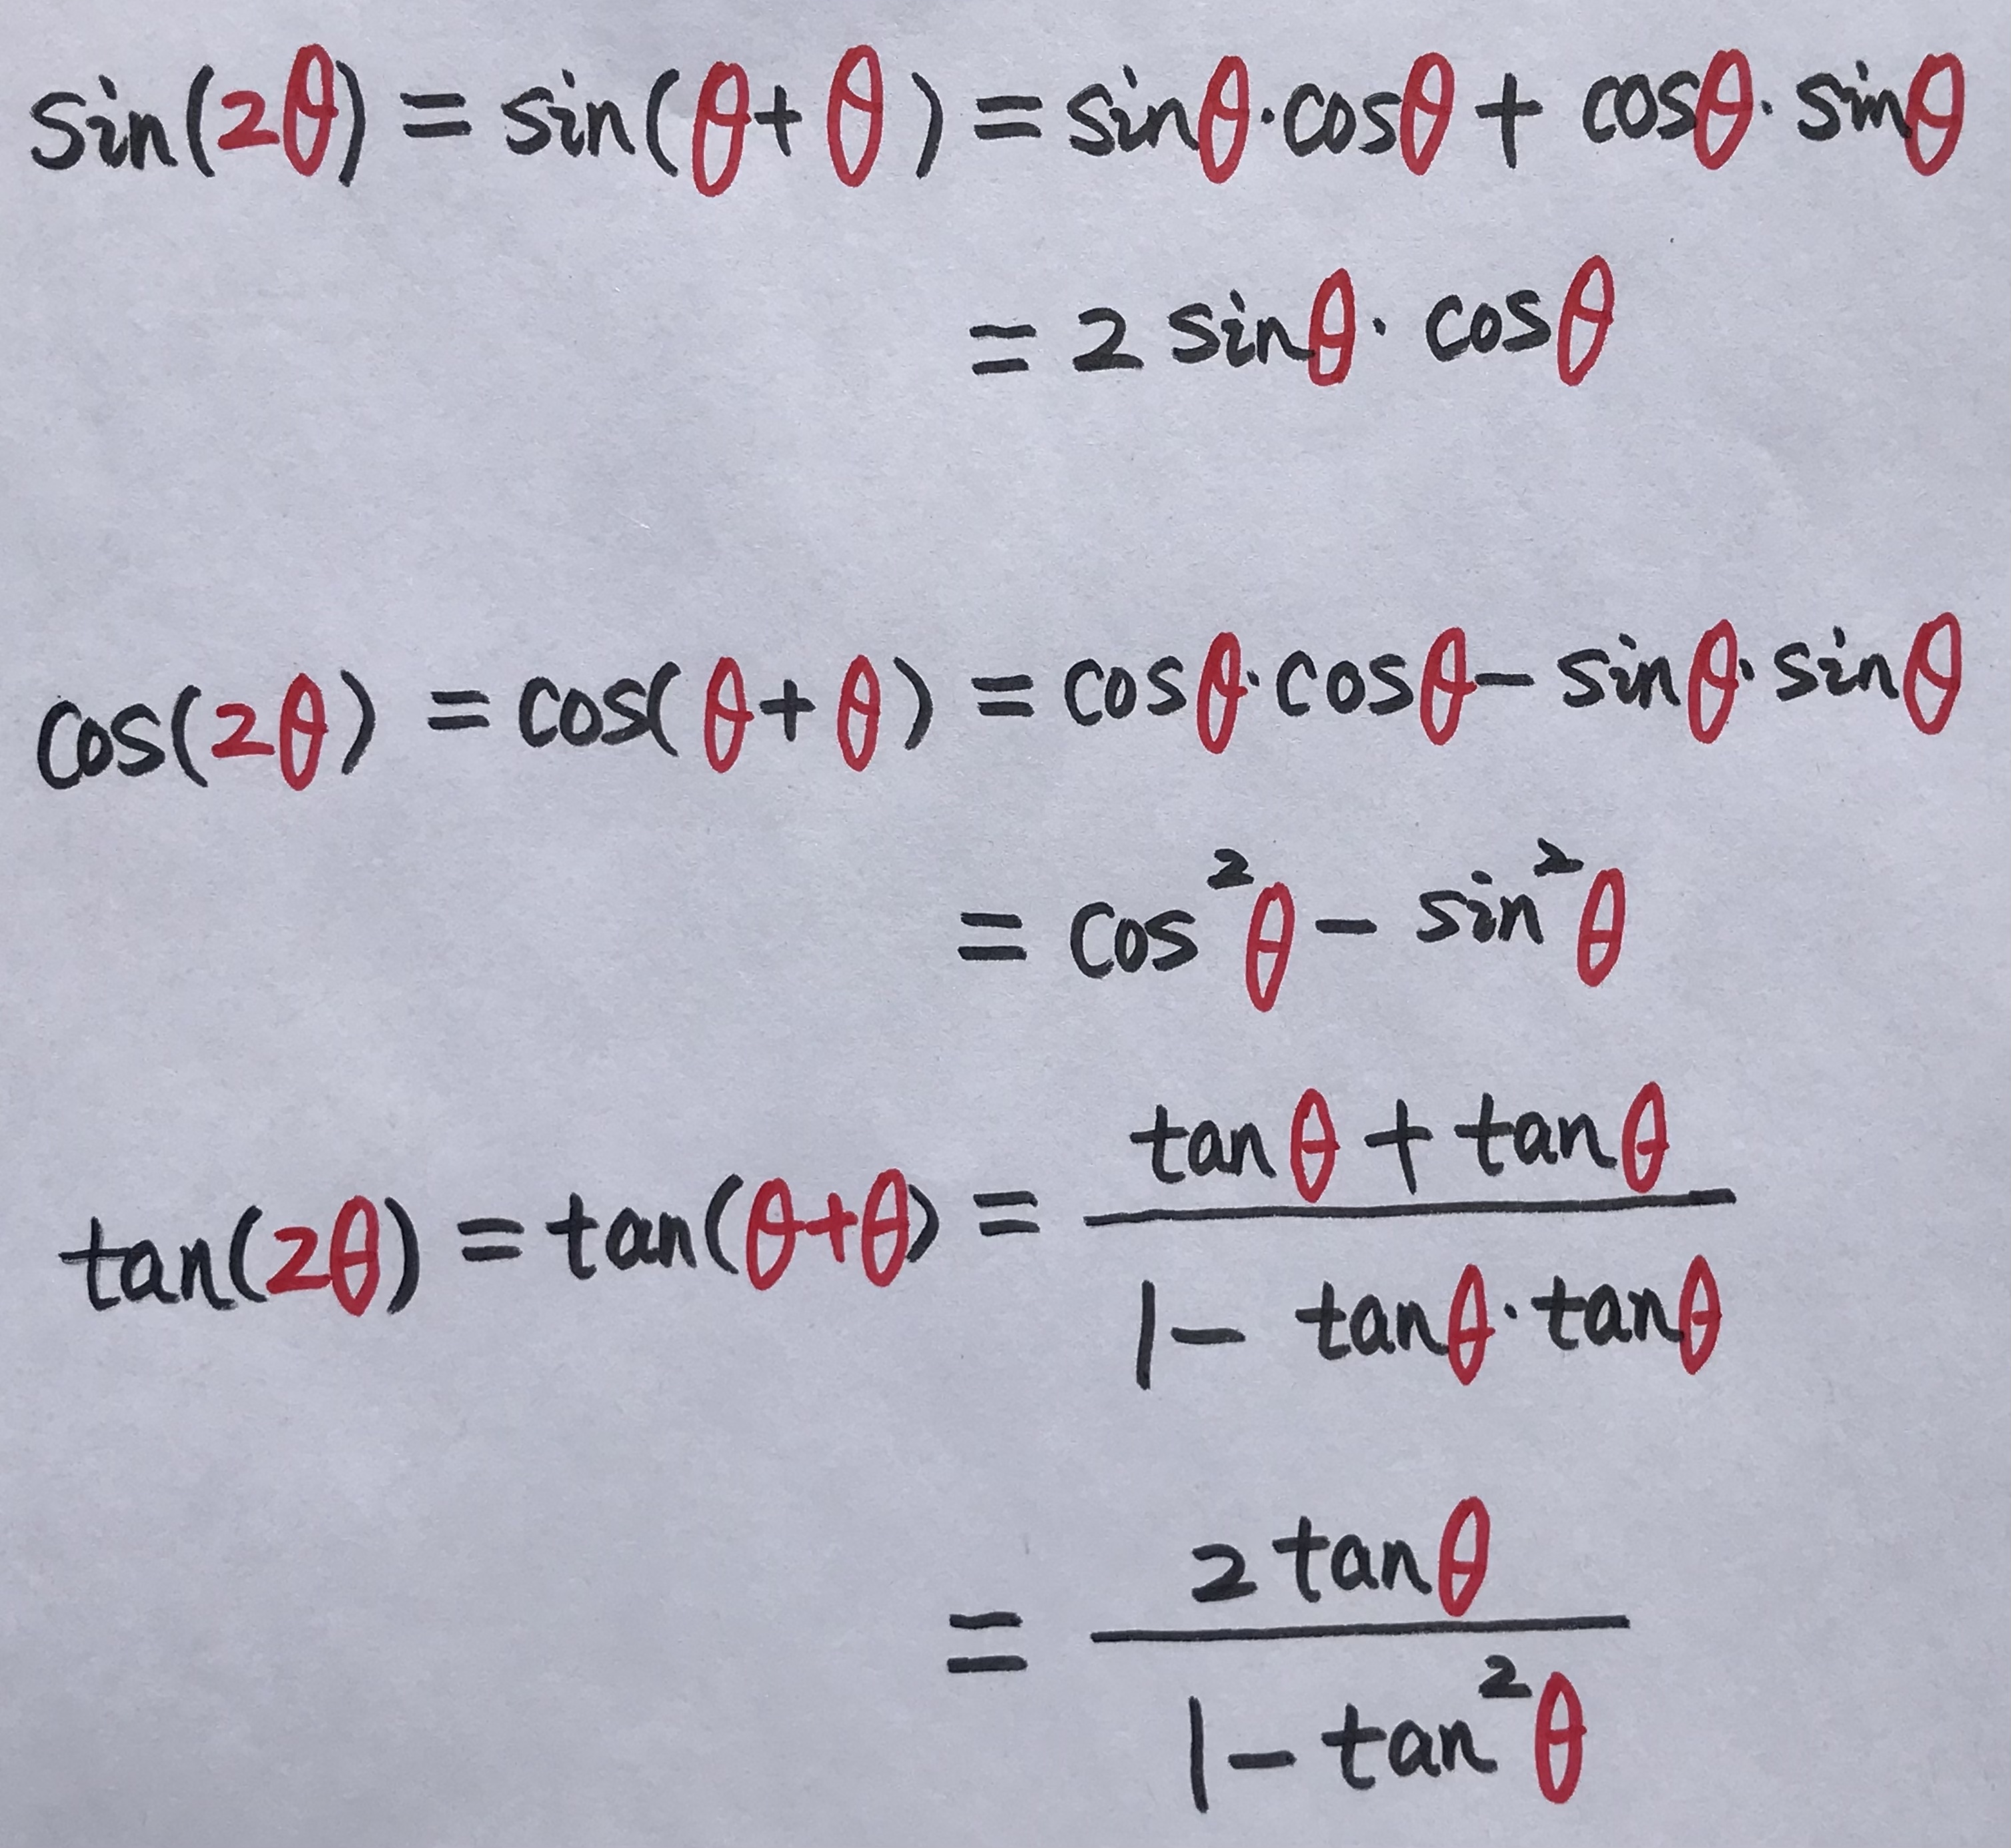 sin(2θ) = sin(θ+θ) = sinθ·cosθ + cosθ·sinθ
= 2 sinθ·cosθ
cos(2θ) = cos(θ+θ) = cosθ·cosθ − sinθ·sinθ
= cos²θ − sin²θ
tan(2θ) = tan(θ+θ) = (tanθ + tanθ)/(1 − tanθ·tanθ)
= (2 tanθ)/(1 − tan²θ)